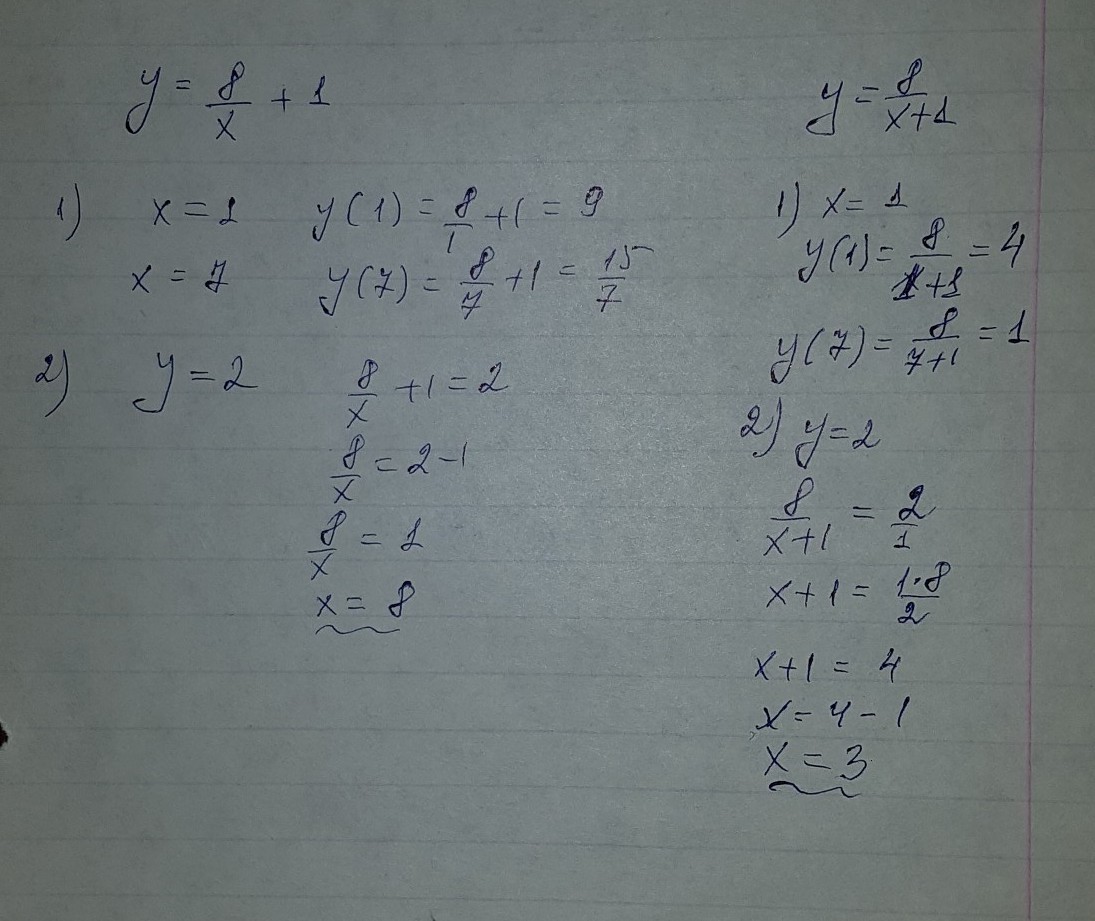 y = 8/x + 1
1) x = 1 y(1) = 8/1 + 1 = 9
x = 7 y(7) = 8/7 + 1 = 15/7
2) y = 2 8/x + 1 = 2
8/x = 2 - 1
8/x = 1
x = 8
y = 8/(x+1)
1) x = 1
y(1) = 8/(1+1) = 4
y(7) = 8/(7+1) = 1
2) y = 2
8/(x+1) = 2/1
x + 1 = (1·8)/2
x + 1 = 4
x = 4 - 1
x = 3